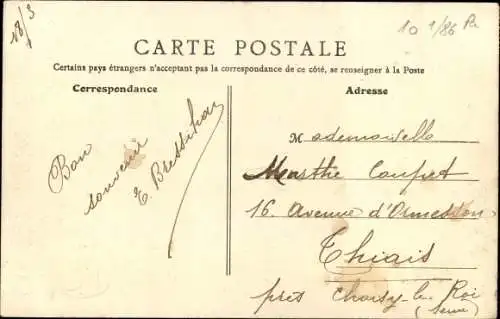 18/3
10 1/86
CARTE POSTALE
Certains pays étrangers n'acceptant pas la correspondance de ce côté, se renseigner à la Poste
Correspondance
Adresse
Bon
souvenir
E.
Mademoiselle
Marthe
16. Avenue d'Ormesson
Thiais
près Choisy-le-Roi
(Seine)